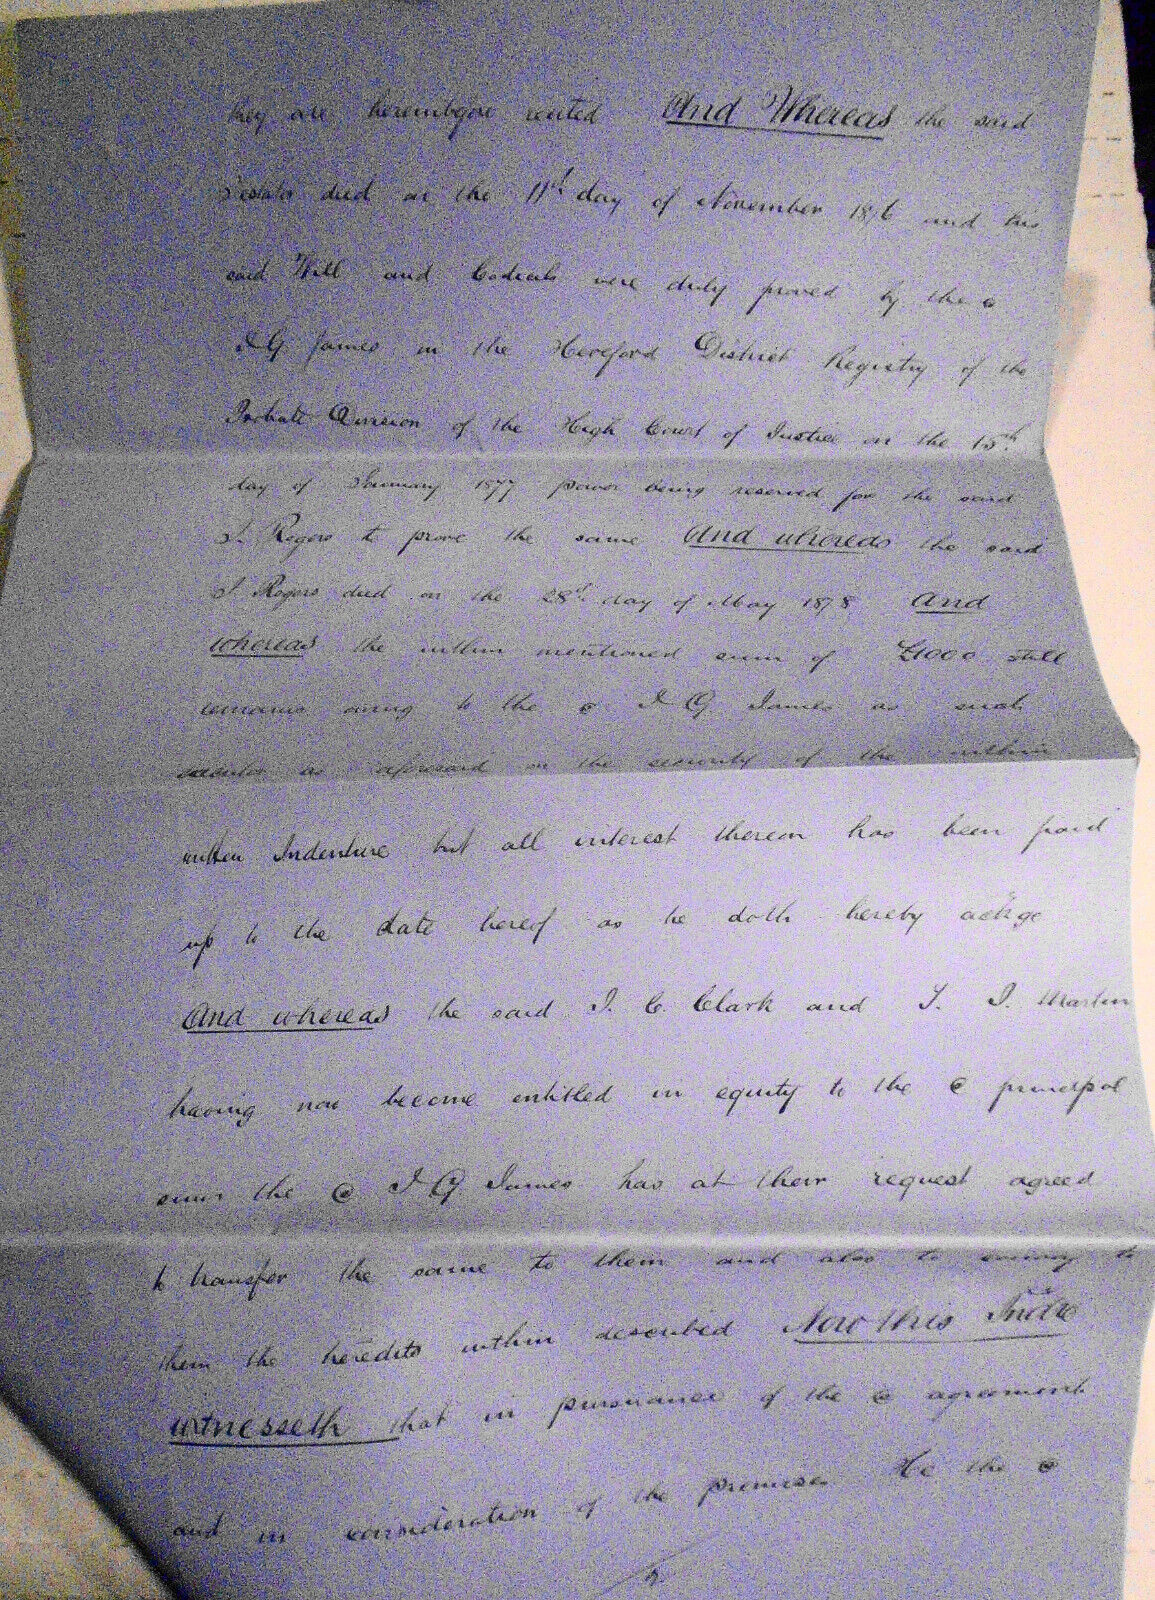 they are hereinbefore recited And Whereas the said
Testator died on the 11th day of November 1876 and his
said Will and Codicils were duly proved by the s
J G James in the Hereford District Registry of the
Probate Division of the High Court of Justice on the 15th
day of January 1877 power being reserved for the said
J. Rogers to prove the same And whereas the said
J Rogers died on the 28th day of May 1878 And
whereas the within mentioned sum of £1000 still
remains owing to the s J G James as such
executor as aforesaid on the security of the within
written Indenture but all interest thereon has been paid
up to the date hereof as he doth hereby ackge
And whereas the said J. C. Clark and T. J. Martin
having now become entitled in equity to the s principal
sum the s J G James has at their request agreed
to transfer the same to them and also to convey to
them the heredits within described Now this Indre
witnesseth that in pursuance of the s agreement
and in consideration of the premises He the s